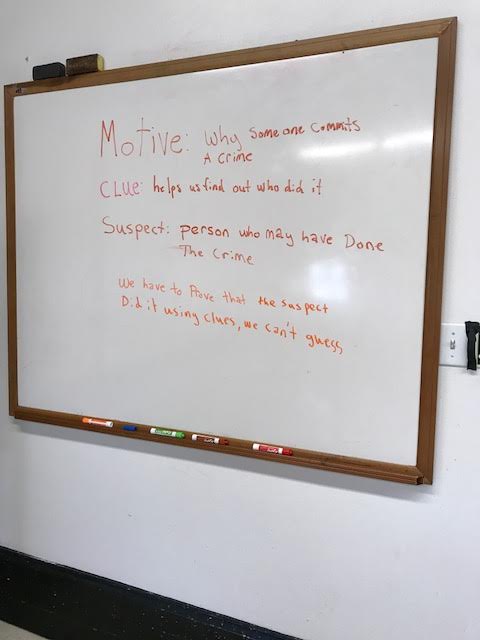 Motive: why someone commits
A crime
CLUE: helps us find out who did it
Suspect: person who may have Done
The Crime
We have to Prove that the suspect
Did it using clues, we can't guess